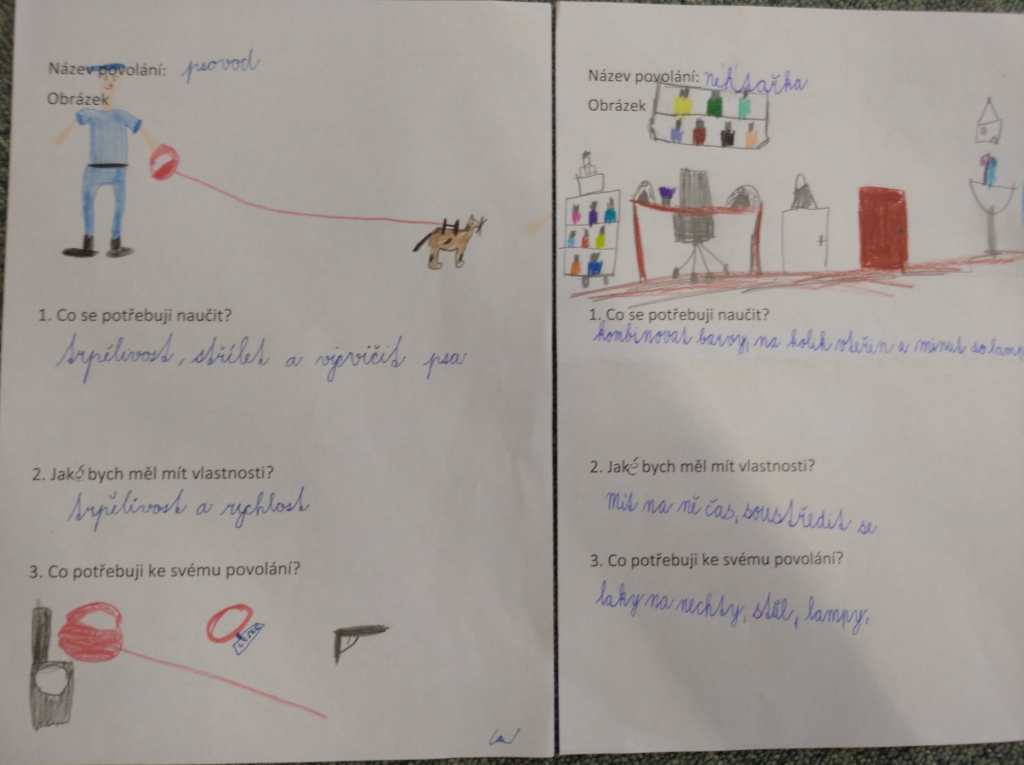 Název povolání: psovod
Obrázek
1. Co se potřebuji naučit?
trpělivost, střílet a vycvičit psa
2. Jaké bych měl mít vlastnosti?
trpělivost a rychlost
3. Co potřebuji ke svému povolání?
Název povolání: nehtařka
Obrázek
1. Co se potřebuji naučit?
kombinovat barvy, na kolik vteřin a minut
2. Jaké bych měl mít vlastnosti?
Mít na ně čas, soustředit se
3. Co potřebuji ke svému povolání?
laky na nechty, stůl, lampy,